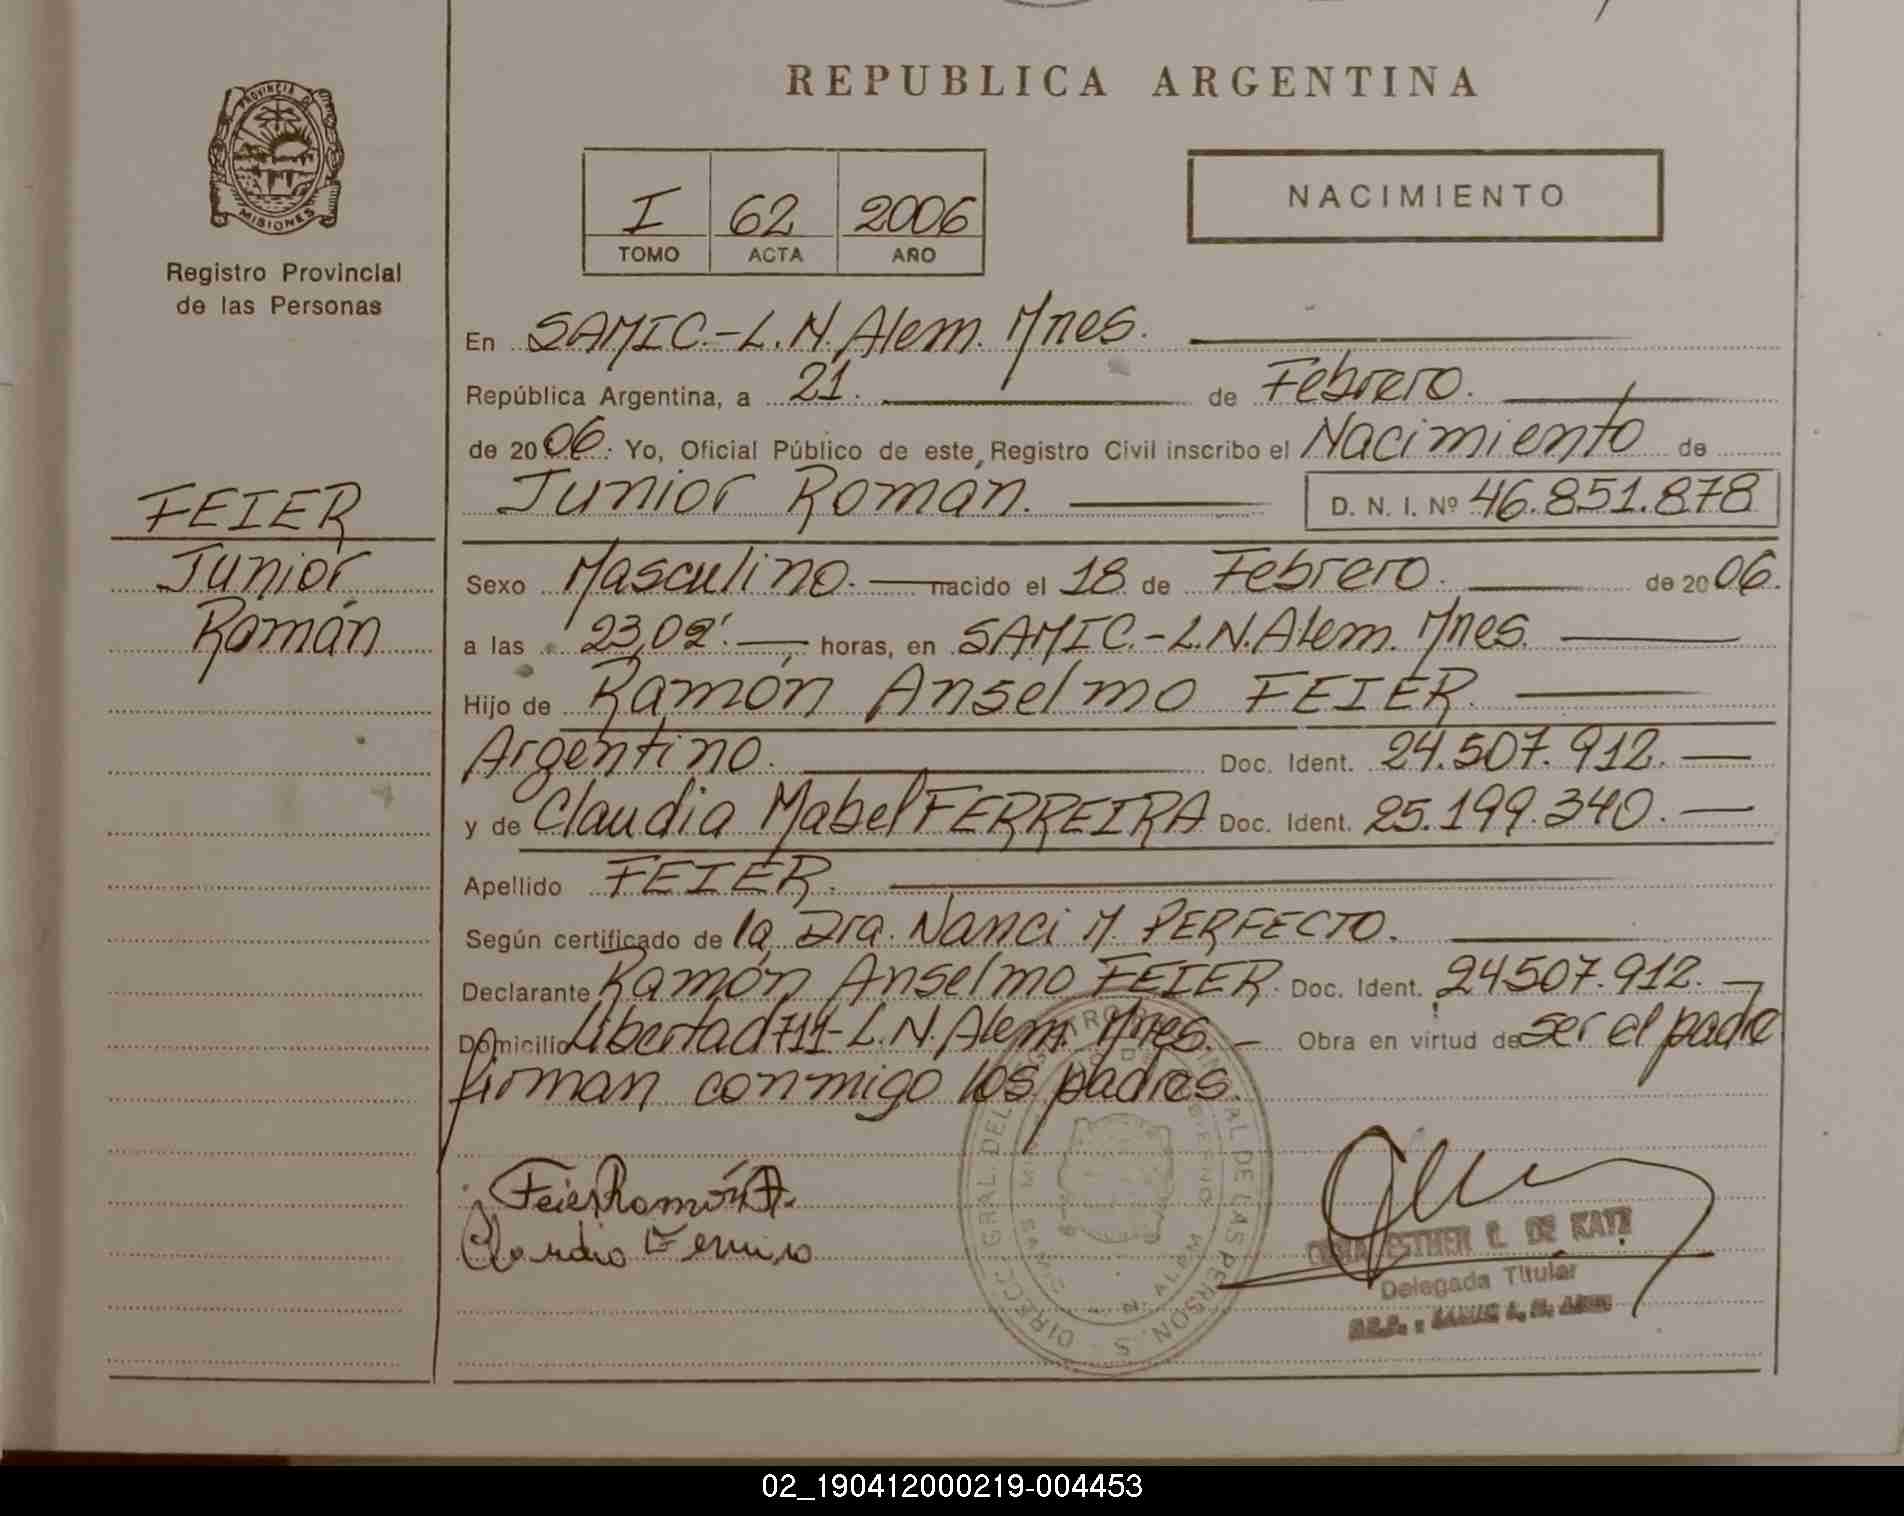 REPUBLICA ARGENTINA
PROVINCIA DE
MISIONES
Registro Provincial
de las Personas
I 62 2006
TOMO ACTA AÑO
NACIMIENTO
En SAMIC.-L.N.Alem. Mnes.
República Argentina, a 21. de Febrero.
de 2006. Yo, Oficial Público de este Registro Civil inscribo el Nacimiento de
Junior Román. D. N. I. Nº 46.851.878
FEIER
Junior
Román
Sexo Masculino. nacido el 18 de Febrero. de 2006.
a las 23,02'. horas, en SAMIC.-L.N.Alem. Mnes.
Hijo de Ramón Anselmo FEIER.
Argentino. Doc. Ident. 24.507.912.
y de Claudia Mabel FERREIRA Doc. Ident. 25.199.340.
Apellido FEIER.
Según certificado de la Dra. Nanci M. PERFECTO.
Declarante Ramón Anselmo FEIER. Doc. Ident. 24507.912.
Domicilio Libertad 711-L.N.Alem. Mnes. Obra en virtud de ser el padre
firman conmigo los padres.
Feier Ramón A.
ESTHER DE KATZ
Delegada Titular
02_190412000219-004453